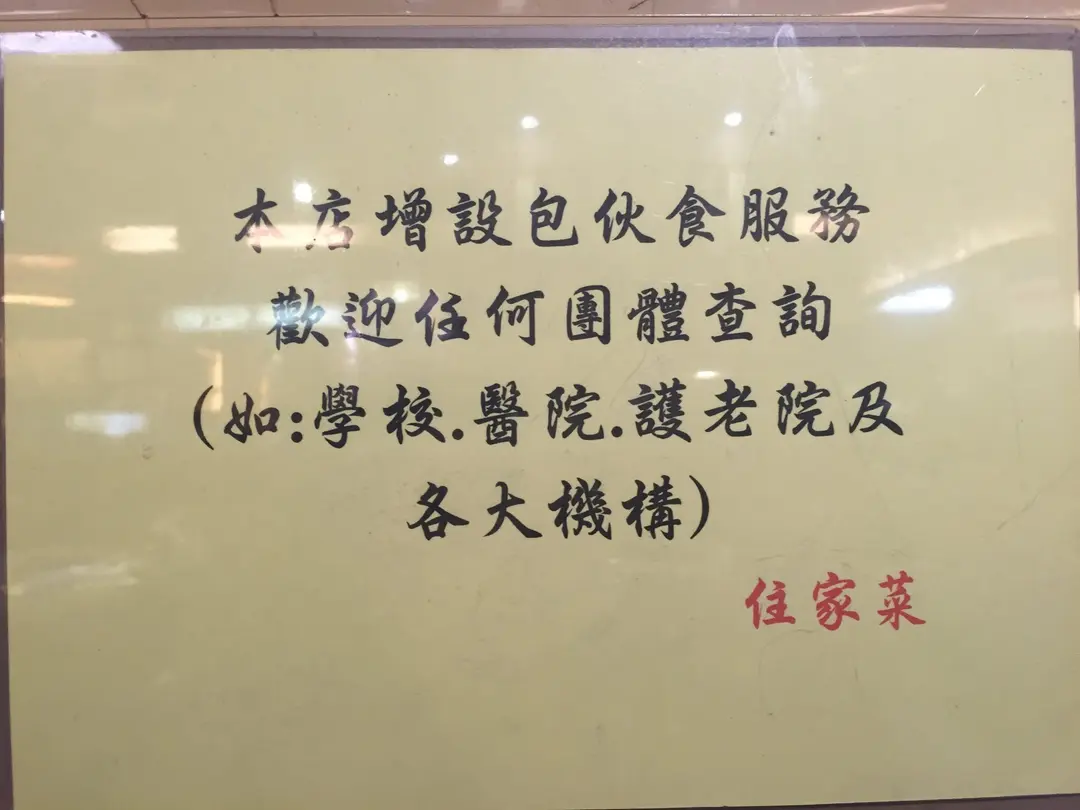 本店增設包伙食服務
歡迎任何團體查詢
(如:學校.醫院.護老院及
各大機構)
住家菜